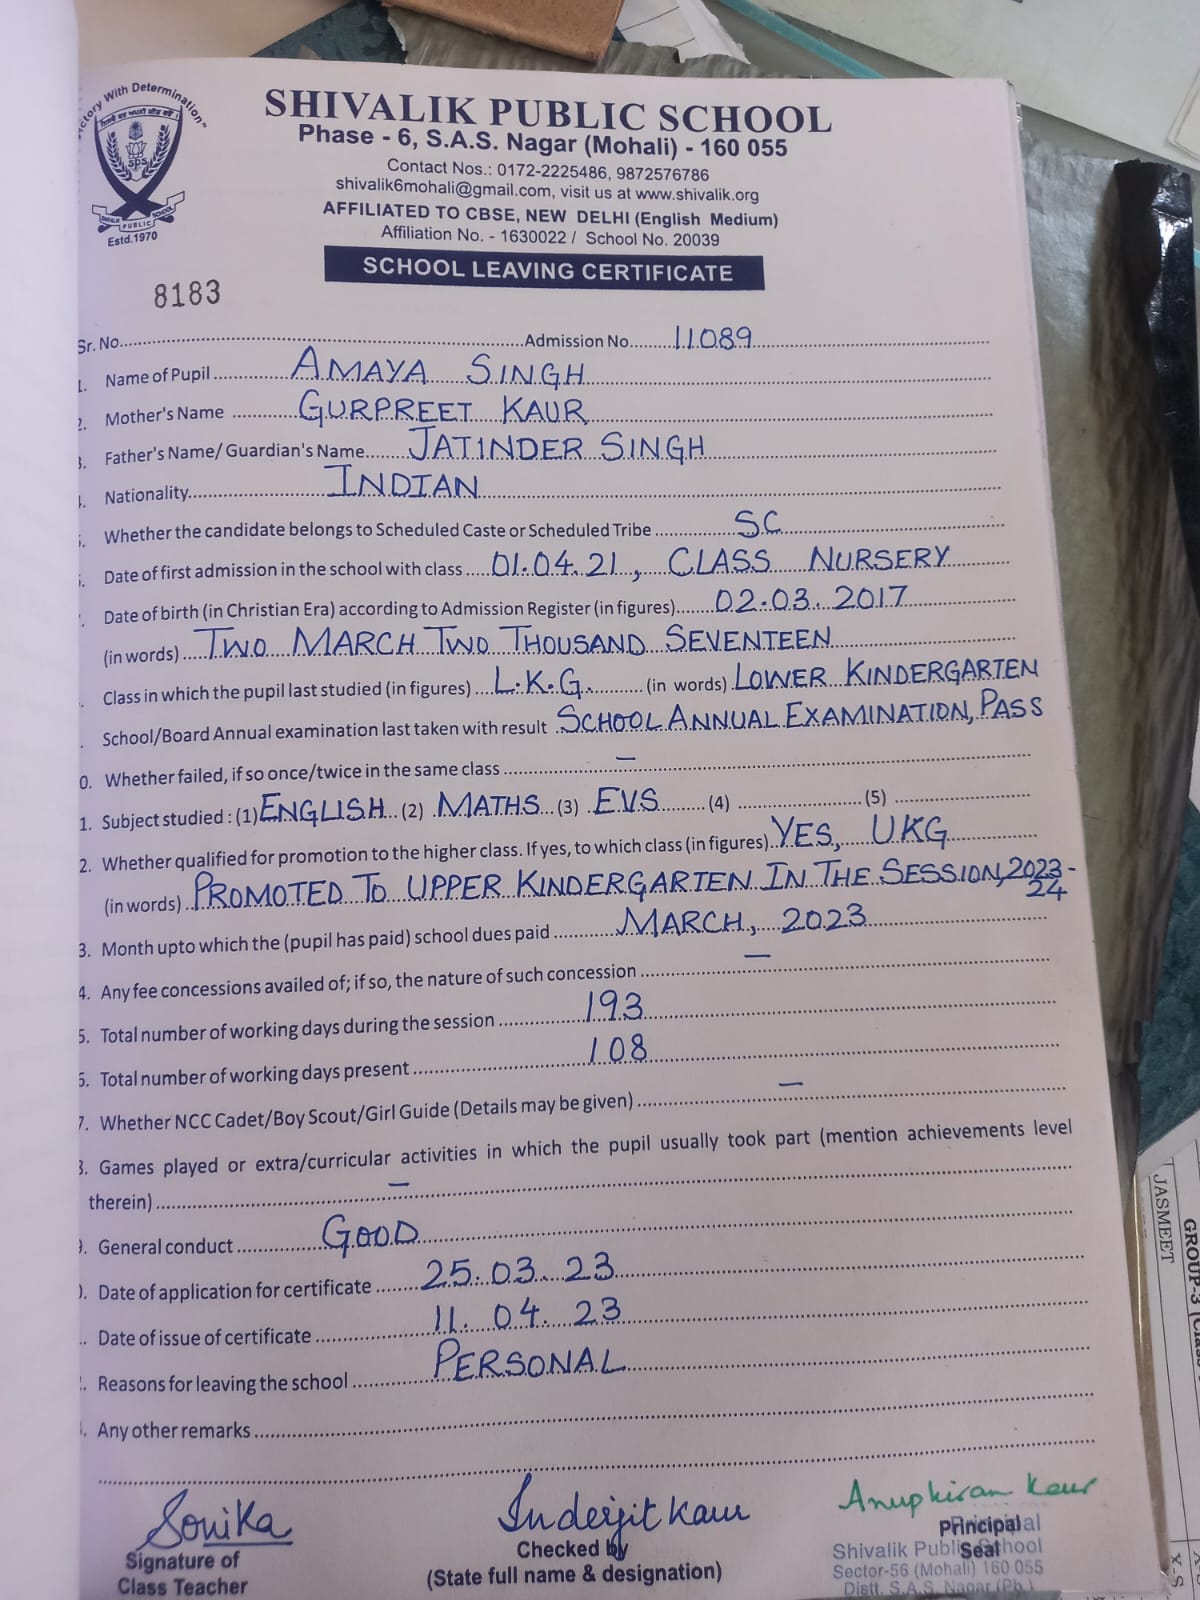 ctory With Determination"
SPS
SHIVALIK PUBLIC SCHOOL
Estd.1970
SHIVALIK PUBLIC SCHOOL
Phase - 6, S.A.S. Nagar (Mohali) - 160 055
Contact Nos.: 0172-2225486, 9872576786
shivalik6mohali@gmail.com, visit us at www.shivalik.org
AFFILIATED TO CBSE, NEW DELHI (English Medium)
Affiliation No. - 1630022 / School No. 20039
SCHOOL LEAVING CERTIFICATE
8183
Sr. No. Admission No. 11089
1. Name of Pupil AMAYA SINGH
2. Mother's Name GURPREET KAUR
3. Father's Name/ Guardian's Name JATINDER SINGH
Nationality INDIAN
Whether the candidate belongs to Scheduled Caste or Scheduled Tribe SC
Date of first admission in the school with class 01.04.21, CLASS NURSERY
Date of birth (in Christian Era) according to Admission Register (in figures) 02.03.2017
(in words) TWO MARCH TWO THOUSAND SEVENTEEN
Class in which the pupil last studied (in figures) L.K.G. (in words) LOWER KINDERGARTEN
School/Board Annual examination last taken with result SCHOOL ANNUAL EXAMINATION, PASS
0. Whether failed, if so once/twice in the same class –
1. Subject studied : (1) ENGLISH (2) MATHS (3) EVS (4) (5)
2. Whether qualified for promotion to the higher class. If yes, to which class (in figures) YES, UKG
(in words) PROMOTED TO UPPER KINDERGARTEN IN THE SESSION, 2023-
24
3. Month upto which the (pupil has paid) school dues paid MARCH, 2023
4. Any fee concessions availed of; if so, the nature of such concession –
5. Total number of working days during the session 193
6. Total number of working days present 108
7. Whether NCC Cadet/Boy Scout/Girl Guide (Details may be given) –
8. Games played or extra/curricular activities in which the pupil usually took part (mention achievements level
therein) –
9. General conduct GOOD
Date of application for certificate 25.03.23
Date of issue of certificate 11.04.23
Reasons for leaving the school PERSONAL
Any other remarks
Sonika
Signature of
Class Teacher
Inderjit Kaur
Checked by
(State full name & designation)
Anupkiran Kaur
Principal
Seal
Principal
Shivalik Public School
Sector-56 (Mohali) 160 055
Distt. S.A.S. Nagar (Pb.)
JASMEET
GROUP-3
X-S